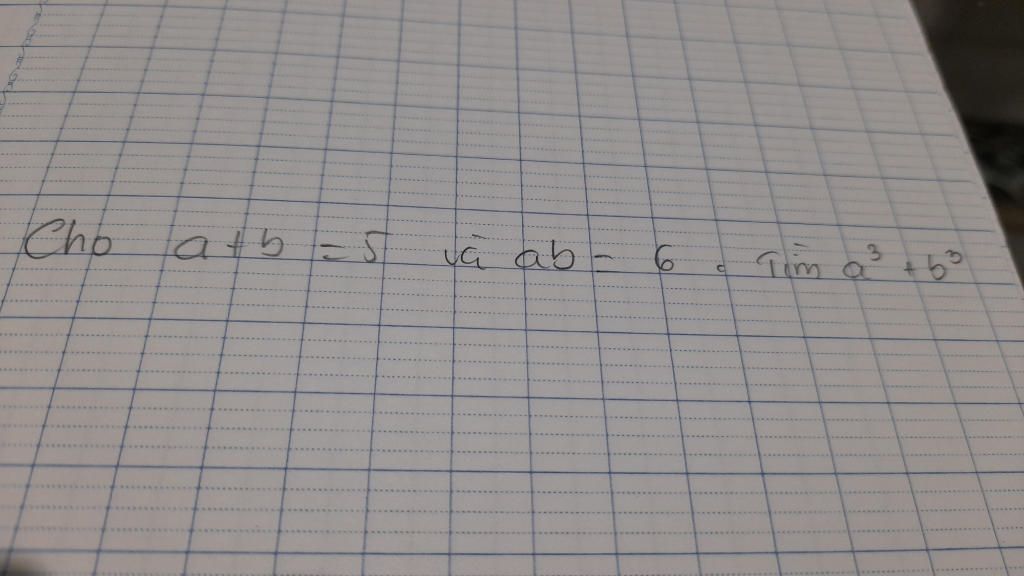 Cho a + b = 5 và ab = 6. Tìm a³ + b³